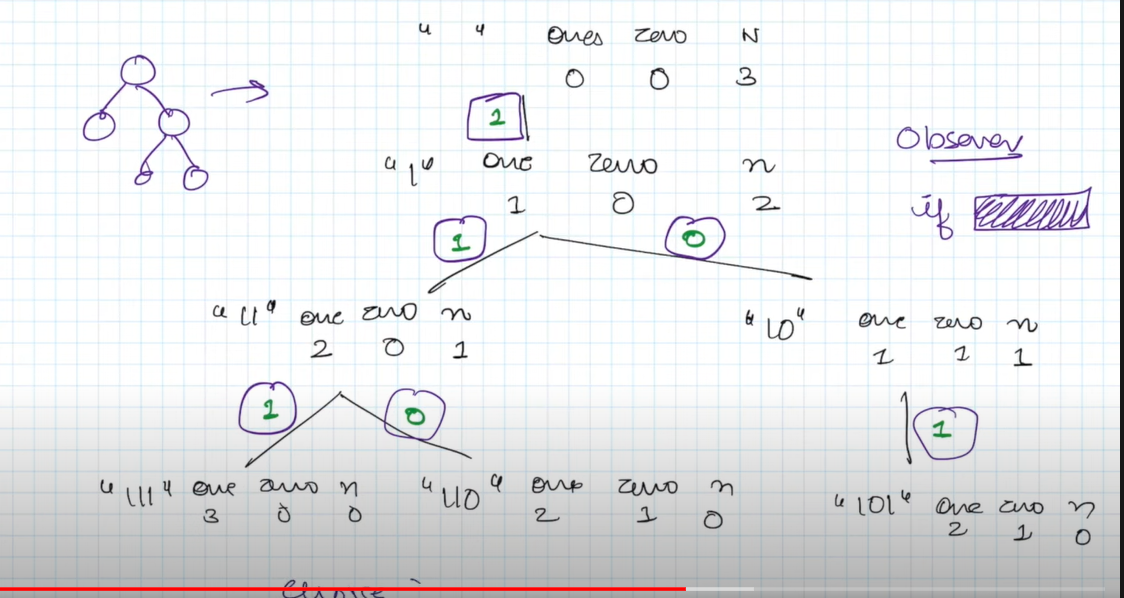 " " Ones Zero N
0 0 3
1
Observer
"1" One Zero n
1 0 2
if
1 0
"11" one zero n
2 0 1
"10" one zero n
1 1 1
1 0
1
"111" one zero n
3 0 0
"110" one zero n
2 1 0
"101" One zero n
2 1 0